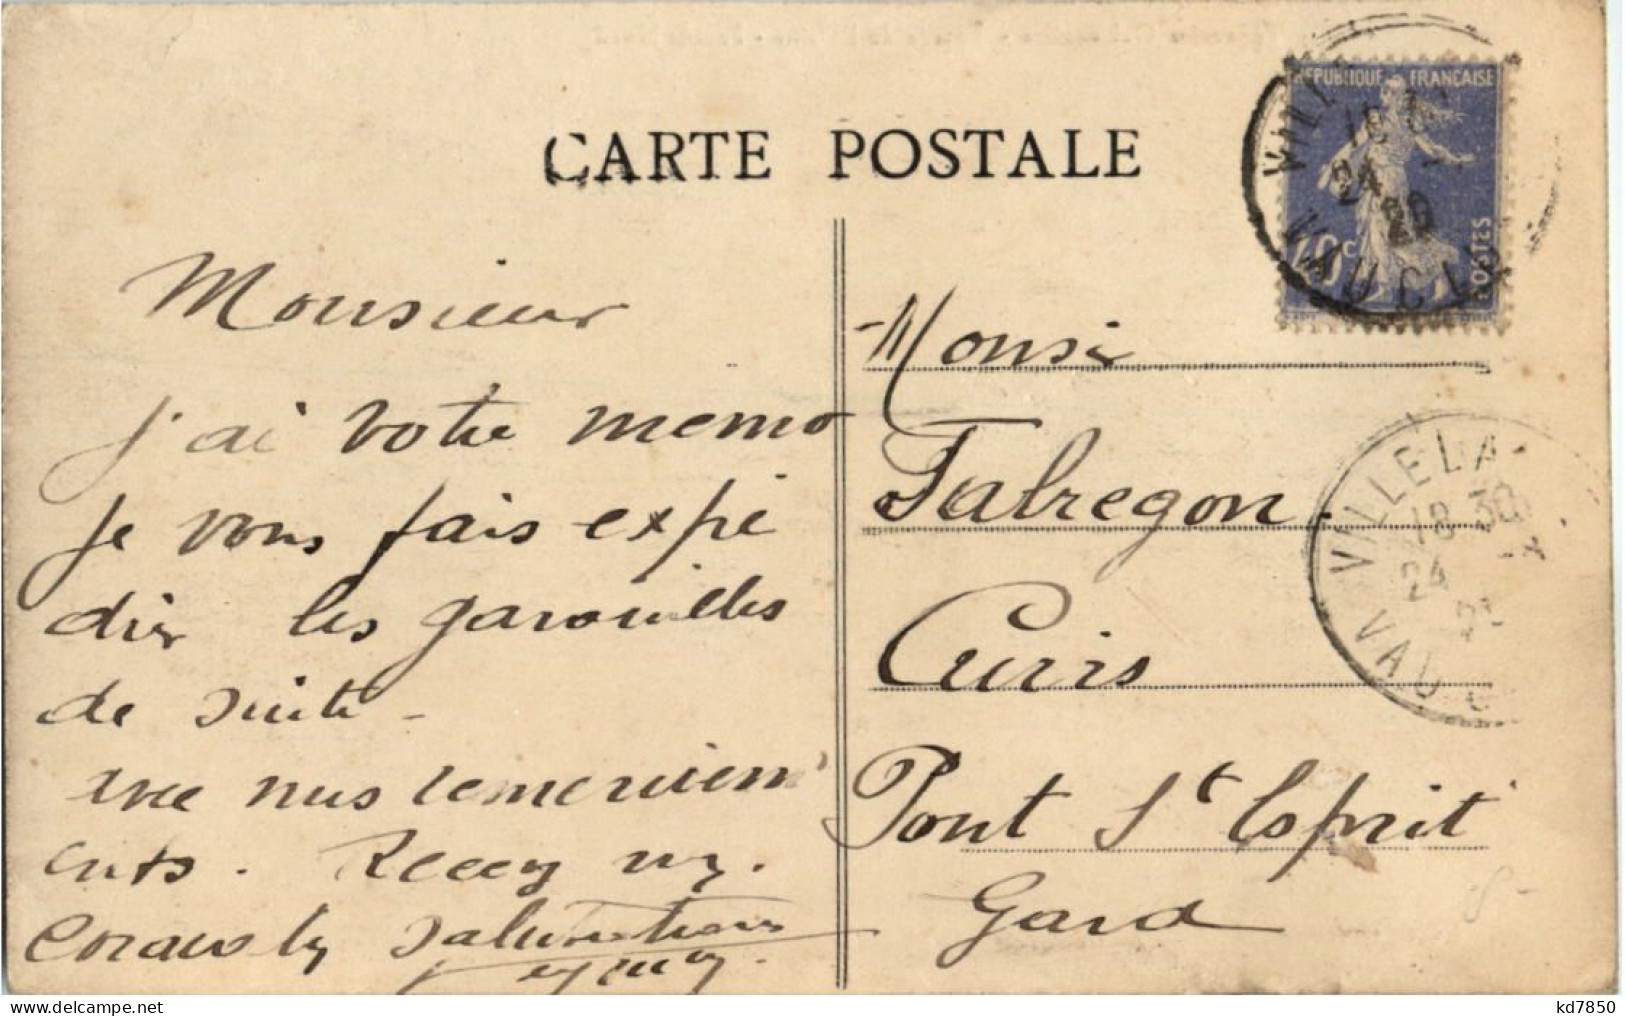 CARTE POSTALE
REPUBLIQUE FRANÇAISE
POSTES
40c
VAUCL
Monsieur
j'ai votre memo
je vous fais expé
dier les garouilles
de suite -
avec nos remerciem
ents. Recevez M.
salutations
Monsier
Fabregon.
Curis
Pont St Esprit
Gard
VALLELA
18 30
24
VAUC
kd7850